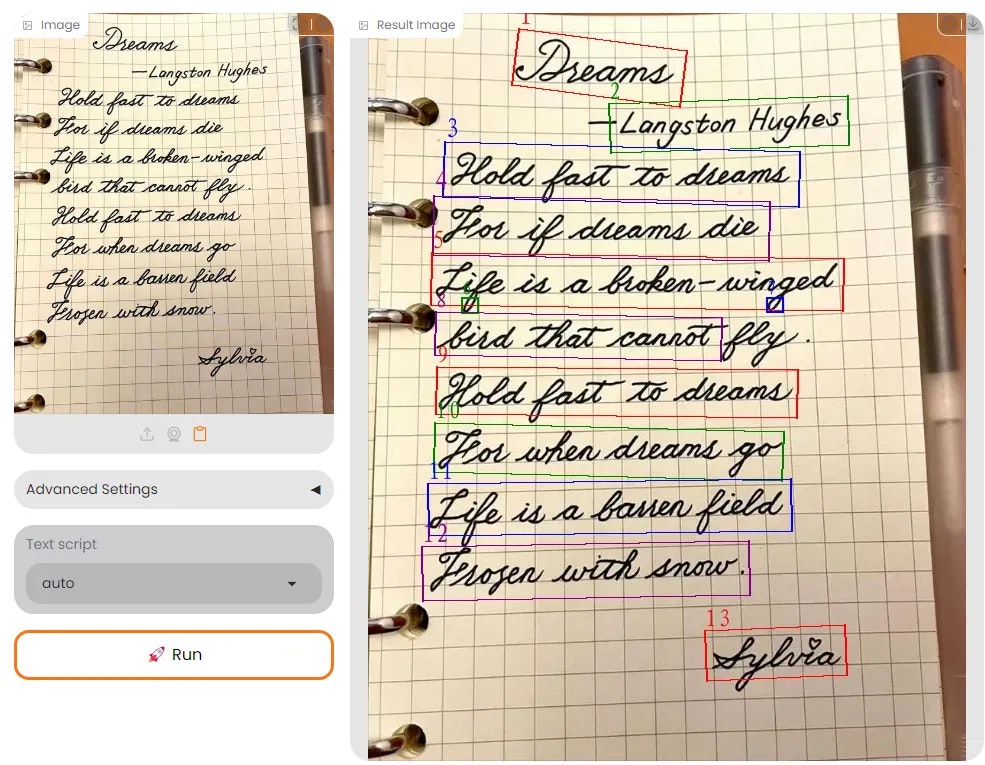 Image
Dreams
—Langston Hughes
Hold fast to dreams
For if dreams die
Life is a broken-winged
bird that cannot fly.
Hold fast to dreams
For when dreams go
Life is a barren field
Frozen with snow.
Sylvia
Advanced Settings
Text script
auto
🚀 Run
Result Image
1
Dreams
2
—Langston Hughes
3
Hold fast to dreams
4
For if dreams die
5
Life is a broken-winged
8
bird that cannot fly.
9
Hold fast to dreams
10
For when dreams go
11
Life is a barren field
12
Frozen with snow.
13
Sylvia